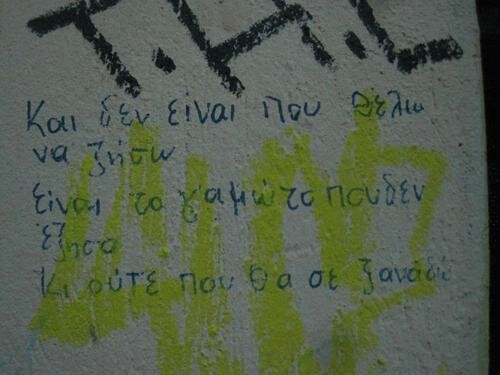 T.H.C
Και δεν είναι που θελω
να ζήσω
είναι το γαμώτο που δεν
έζησα
Κι ούτε που θα σε ξαναδώ